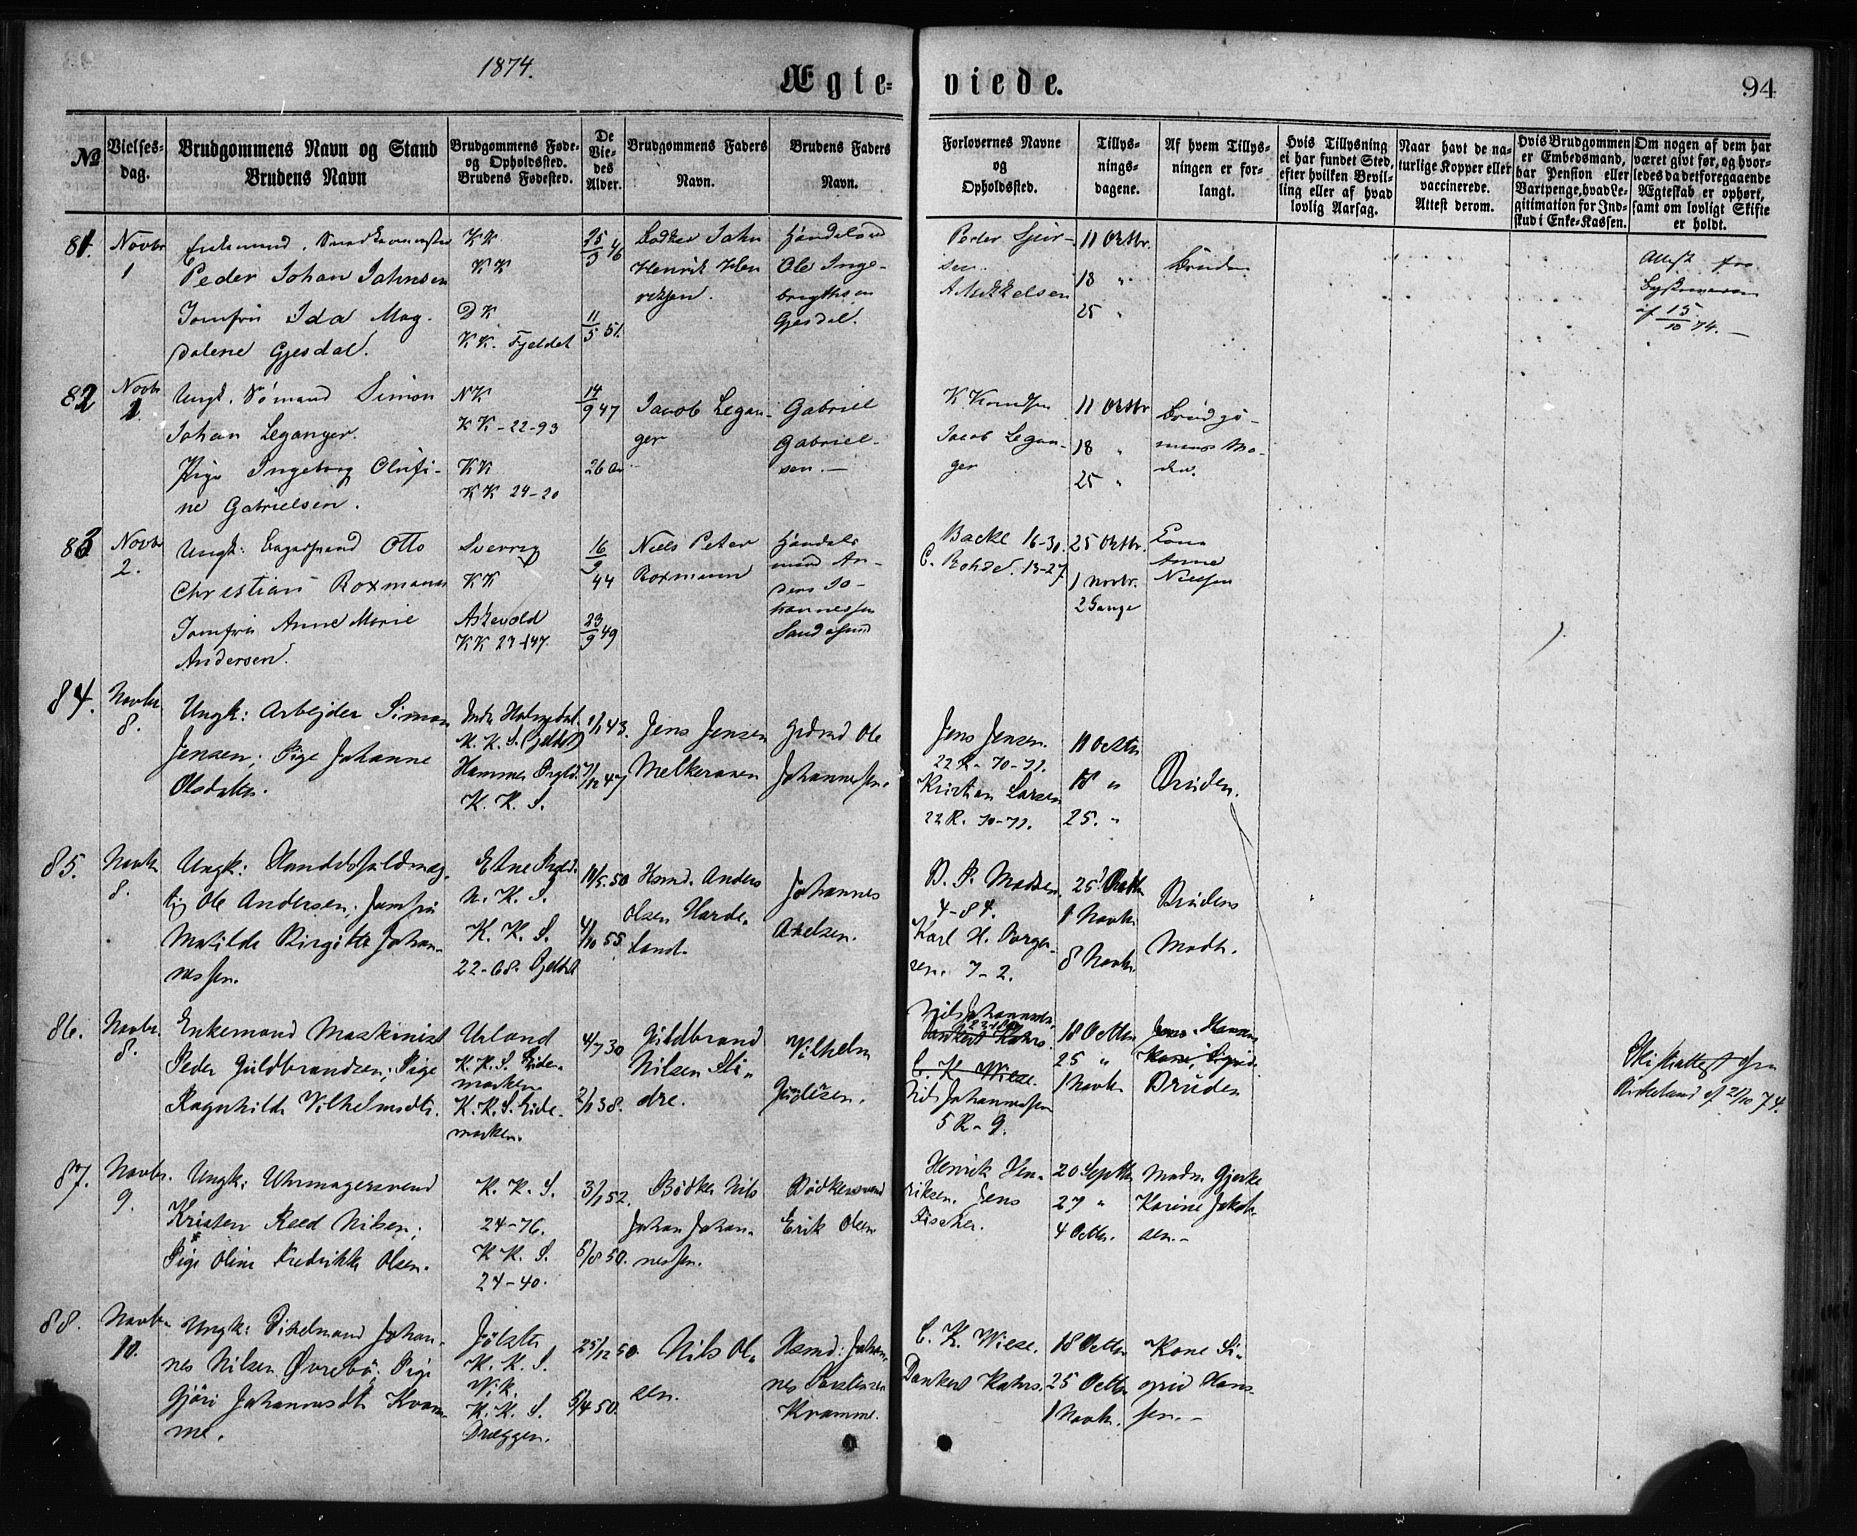 1874.
Ægte-
viede.
94
№
Vielses-
dag.
Brudgommens Navn og Stand
Brudens Navn
Brudgommens Føde-
og Opholdssted.
Brudens Fødested.
De
Vie-
des
Alder.
Brudgommens Faders
Navn.
Brudens Faders
Navn.
Forlovernes Navne
og
Opholdssted.
Tillys-
nings-
dagene.
Af hvem Tillys-
ningen er for-
langt.
Hvis Tillysning
ei har fundet Sted,
efter hvilken Bevil-
ling eller af hvad
lovlig Aarsag.
Naar havt de na-
turlige Kopper eller
vaccinerede.
Attest derom.
Hvis Brudgommen
er Embedsmand,
har Pension eller
Vartpenge, hvad Le-
gitimation for Ind-
skud i Enke-Kassen.
Om nogen af dem har
været givt før, og hvor-
ledes da det foregaaende
Ægteskab er ophørt,
samt om lovligt Skifte
er holdt.
81.
Novbr
1
Enkemand,
Peder Johan Jahnsen
Jomfru Ida Mag-
dalene Gjesdal.
KK
KK
DK
KK. Fjeldet
25/3 46
11/5 51.
Bødker Jahn
Henrik Hen
riksen.
Ole Inge-
brigtsen
Gjesdal.
Peder
A Mikkelsen
11 Oktbr.
18 "
25 "
Bruden
Attest fra
af 15/10 74. —
82
Novbr
1.
Ungk. Sømand Simon
Johan Leganger.
Pige Ingeborg Olufi-
ne Gabrielsen.
NK
KK - 22-93
KK
KK 24-20
14/9 47
26 Aar
Jacob Legan-
ger
Gabriel
Gabriel-
sen. —
K. Knudsen
Jacob Legan-
ger
11 Oktbr
18 "
25 "
Brudgo-
mens Mo-
der.
83
Novbr
2.
Ungk: Otto
Christian Roxmann
Jomfru Anne Marie
Andersen.
Sverrig
KK
Askevold
KK 23-147.
16/9 44
23/9 49
Niels Peter
Roxmann
Handels
mand An-
ders Jo-
hannessen
Backe 16-30.
C. Rohde. 13-27.
25 Oktbr.
1 Novbr.
2 Gange
Kone
Anne
Nielsen
84.
Novbr.
8.
Ungk: Arbejder Simon
Jensen; Pige Johanne
Olsdatter.
Indr. Holmedal.
K. K. S. (Fjeldet)
Hammer Prgld.
K. K. S.
1/1 43.
7/12 47
Jens Jensen
Melkeraaen
Grdmd Ole
Johannesen.
Jens Jensen.
22 R. 70-71.
Kristian Larsen
22 R. 70-71.
11 Octbr
18 "
25. "
Bruden.
85.
Novbr.
8.
Ungk: Handelsfuldmæg-
tig Ole Andersen; Jomfru
Matilde Birgitte Johan-
nessen.
Etne Prgld.
N. K. S.
K. K. S.
22-68. Fjeldet
11/5. 50
4/10 55.
Hsmd. Anders
Olsen Harde-
land.
Johannes
Axelsen.
B. P. Madsen.
4-84.
Karl H. Borge-
sen. 7-2.
25 Octbr
1 Novbr.
8 Novbr.
Brudens
Modr.
86.
Novbr.
8.
Enkemand Maskinist
Peder Guldbrandsen; Pige
Ragnhilde Vilhelmsdtr.
Urland
K. K. S. Side-
marken
K. K. S. Side-
marken.
4/7 30
2/1 38.
Guldbrand
Nilsen Sti-
dre.
Vilhelm
Nils Johannesen,
Dankert Kahrs.
C. K. Wiese.
Nils Johannessen
5 R-9.
18 Octbr
25 "
1 Novbr.
Jens Hansen
Kone, Sigrid
Bruden
Skifteattest fra
Birkeland af 21/10 74.
87.
Novbr.
9.
Ungk: Uhrmagersvend
Kristen Reed Nilsen;
Pige Oline Fredrikke Olsen.
K. K. S.
24-76.
K K. S.
24-40.
3/1 52.
5/8 50.
Bødker Nils
Johan Johan-
nessen.
Bødkersvend
Erik Olsen
Henrik Hen-
riksen. Jens
Fischer.
20 Septbr
27 "
4 Octbr.
Madm Gjerke
Karine Jakob-
sen.-
88.
Novbr
10.
Ungk: Johan-
nes Nilsen Øvrebø; Pige
Gjøri Johannesdtr Kvam-
me.
Jølster
K. K. S.
V.k.
K. K. S.
Dræggen.
25/12 50.
5/4 50.
Nils Ol-
sen.
Hsmd: Johan-
nes Torstensen
Kvamme.
C. K. Wiese.
Dankert Kahrs.
18 Octbr
25 Octbr
1 Novbr.
Kone Si-
grid Hans-
sen. -